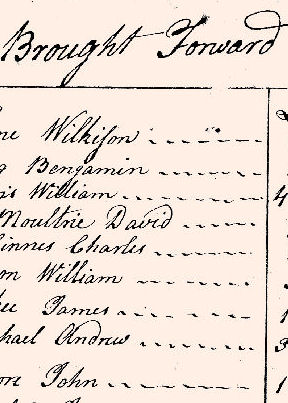 Brought Forward
ne Wilkison
g Benjamin
is William 4
Moultrie David
innes Charles
on William
ee James 1
hael Andrew 3
ore John 1